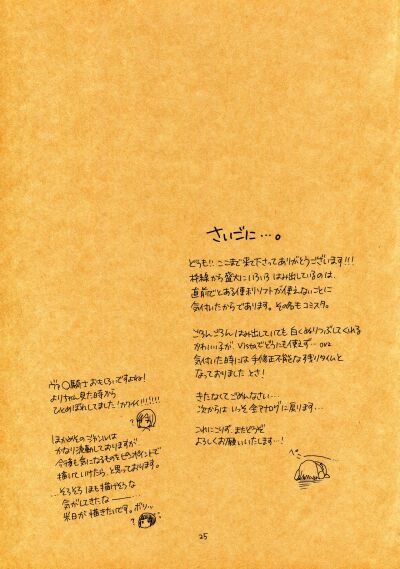 さいごに…。
どうも!! ここまで来て下さってありがとうございます!!!
枠線から盛大にいろいろはみ出しているのは、
直前でとある便利ソフトが使えないことに
気付いたからであります。その名もコミスタ。
ごろんごろんはみ出していても白くぬりつぶしてくれる
かわいい子が、Vistaでどうにも使えず…orz
気付いた時には手修正不能な残りタイムと
なっておりましたとさ!
きたなくてごめんなさい…
次からはいっそ全アナログに戻ります…
これにこりず、またどうぞ
よろしくお願いいたします…!
ヴァ〇騎士おもしろいですよね!
よりちゃん見た時から
ひとめぼれしてました!カワイイ!!!!!
ほかのそのジャンルは
かなり流動しておりますが
今後も気になるものをピンポイントで
描いていけたら、と思っております。
…そろそろほも描けそうな
気がしてきたな———…
米日が描きたいです。ボソッ
25